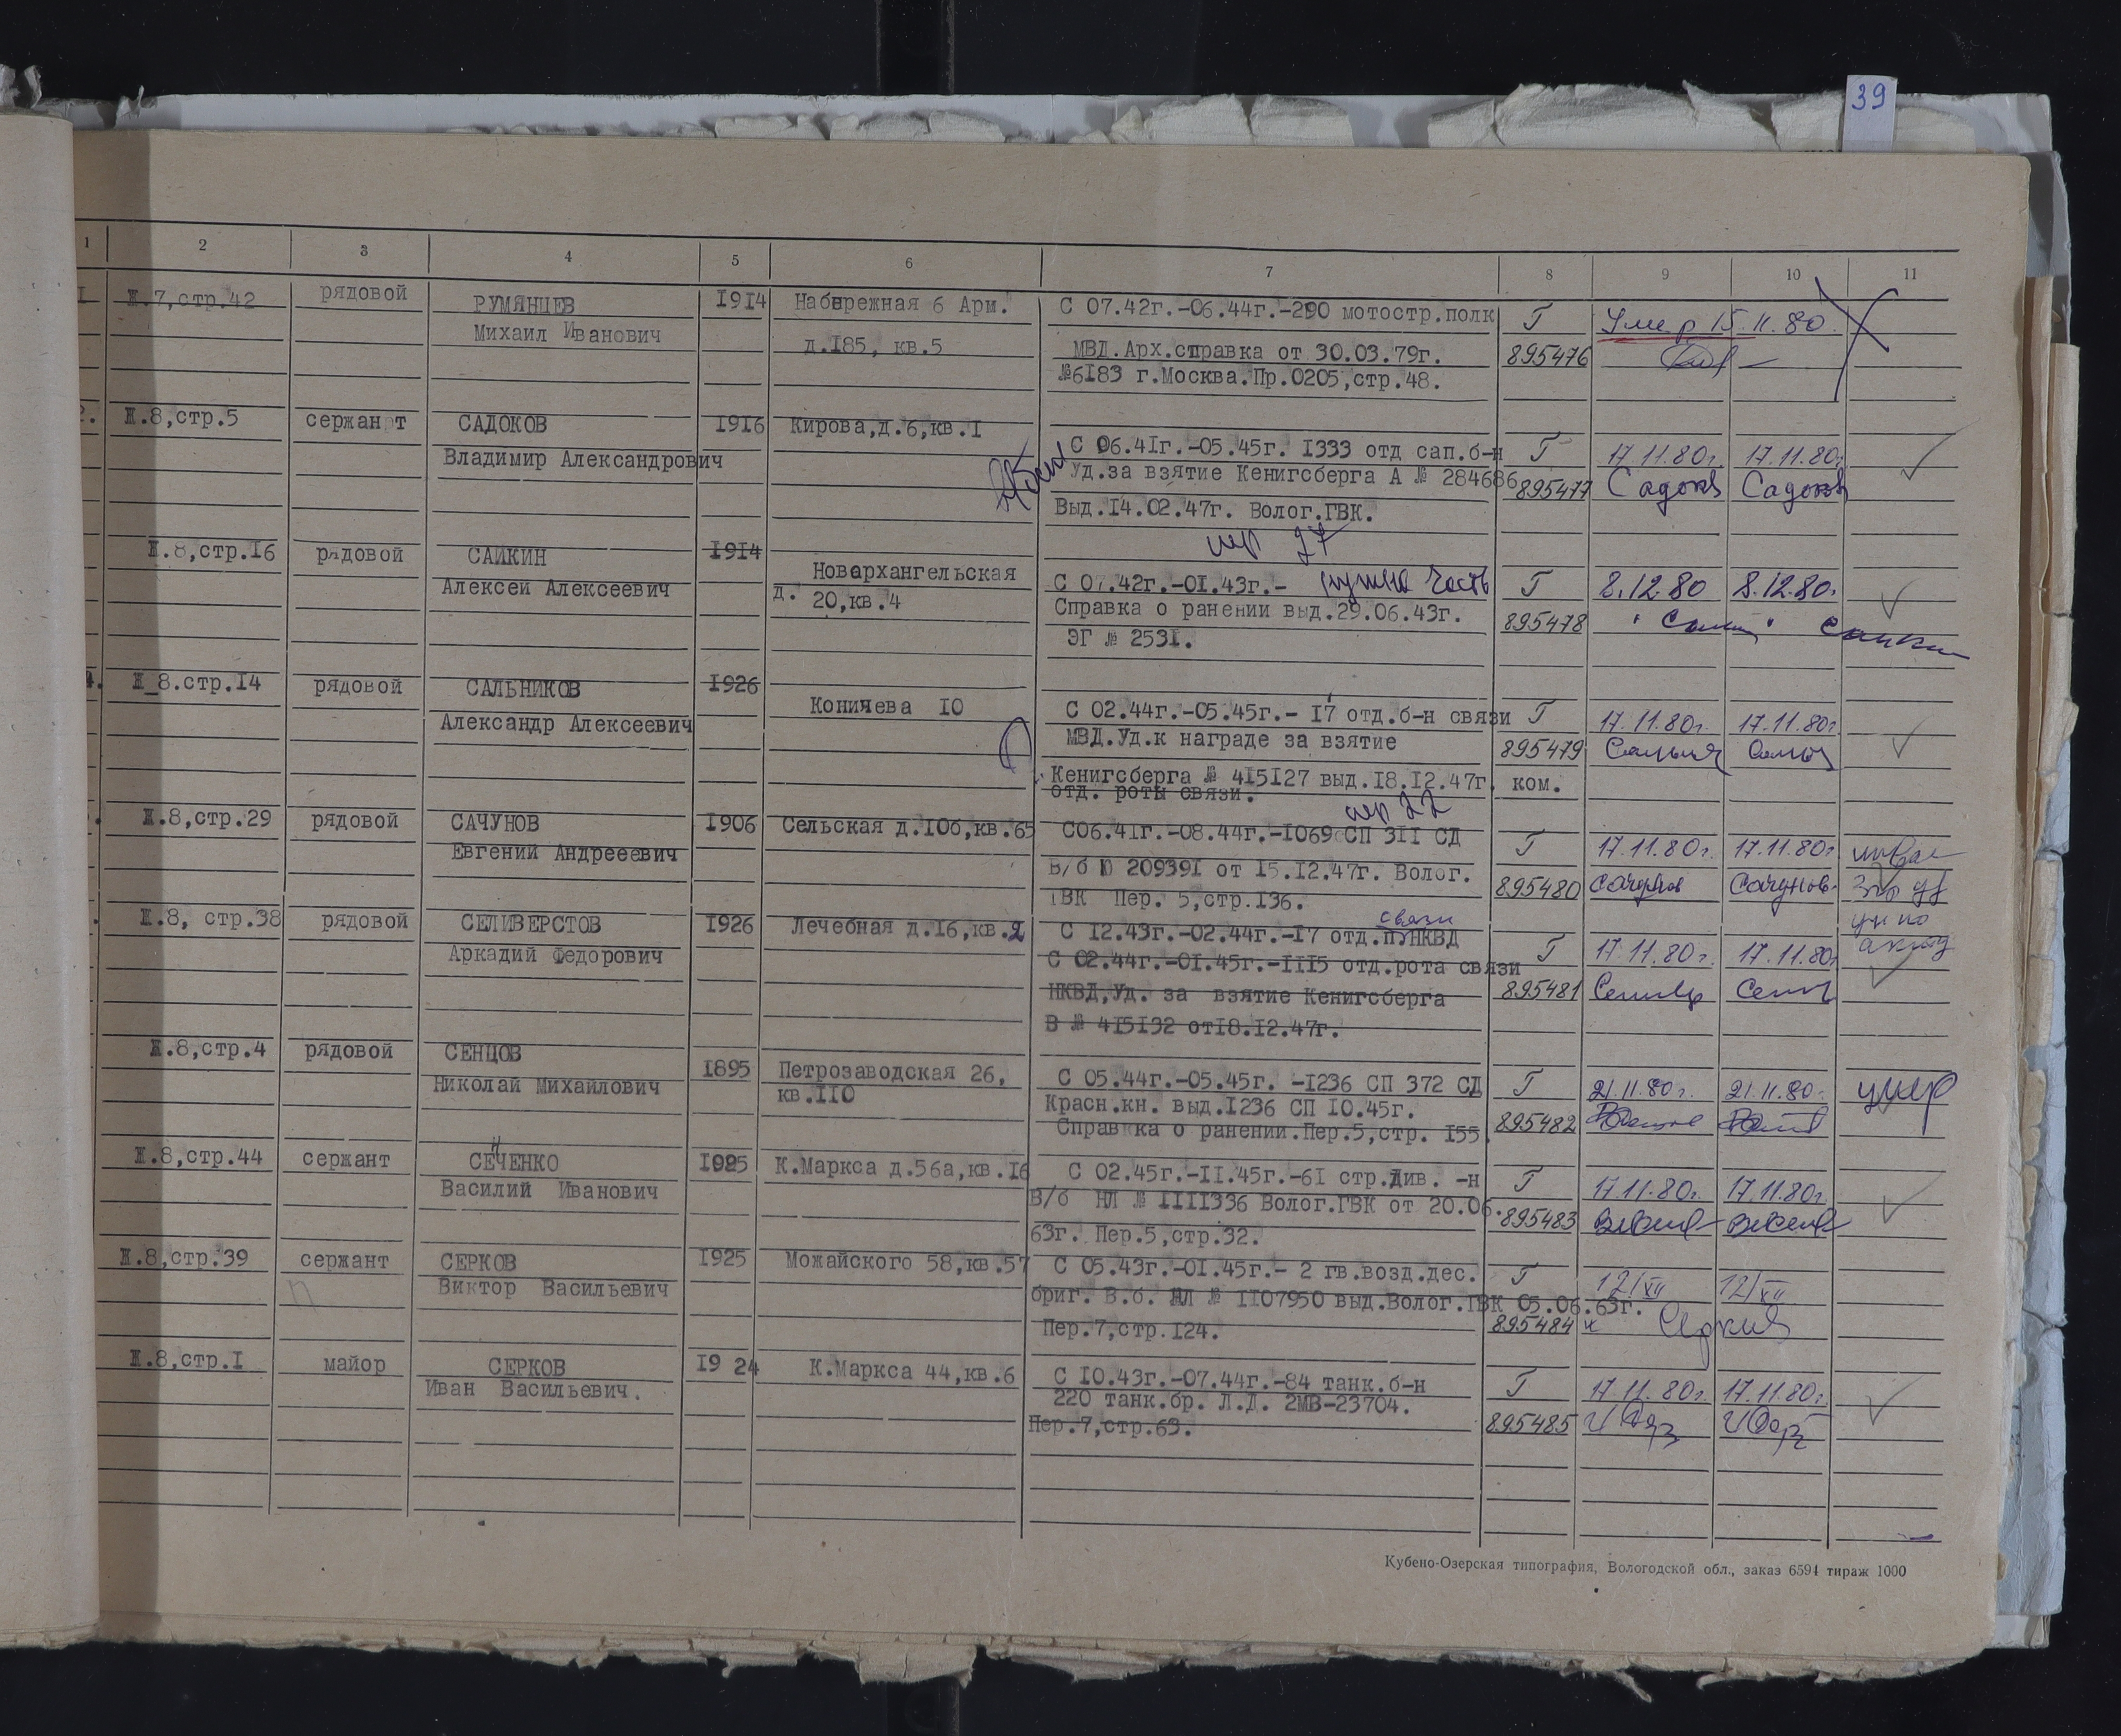 39
1 2 3 4 5 6 7 8 9 10 11
Ж.7,стр.42 рядовой РУМЯНЦЕВ 1914 Набережная 6 Арм. С 07.42г.-06.44г.-290 мотостр.полк Г Умер 15.11.80.
Михаил Иванович д.185, кв.5 МВД.Арх.справка от 30.03.79г. 895476
№6183 г.Москва.Пр.0205,стр.48.
2. Ж.8,стр.5 сержант САДОКОВ 1916 Кирова,д.6,кв.1
Владимир Александрович С 06.41г.-05.45г. 1333 отд сап.б-н Г 17.11.80г. 17.11.80г.
Уд.за взятие Кенигсберга А № 284686 895477 Садоков Садоков
Выд.14.02.47г. Волог.ГВК.
Ж.8,стр.16 рядовой САЙКИН 1914
Алексей Алексеевич Новоархангельская С 07.42г.-01.43г.- нужна часть Г 8.12.80 8.12.80.
д. 20,кв.4 Справка о ранении выд.29.06.43г. 895478
ЭГ № 2531.
4. Ж_8.стр.14 рядовой САЛЬНИКОВ 1926
Александр Алексеевич Коничева 10 С 02.44г.-05.45г.- 17 отд.б-н связи Г 17.11.80г. 17.11.80г
МВД.Уд.к награде за взятие 895479
Кенигсберга № 415127 выд.18.12.47г. ком.
отд. роты связи.
Ж.8,стр.29 рядовой САЧУНОВ 1906 Сельская д.10б,кв.65 С06.41г.-08.44г.-1069 СП 311 СД Г 17.11.80г. 17.11.80г
Евгений Андрееевич В/б Ю 209391 от 15.12.47г. Волог. 895480 Сачунов Сачунов
ГВК Пер. 5,стр.136.
связи
Ж.8, стр.38 рядовой СЕЛИВЕРСТОВ 1926 Лечебная д.16,кв.2 С 12.43г.-02.44г.-17 отд.п НКВД Г 17.11.80г. 17.11.80г
Аркадий Федорович С 02.44г.-01.45г.-1115 отд.рота связи
НКВД,Уд. за взятие Кенигсберга 895481
В № 415132 от18.12.47г.
Ж.8,стр.4 рядовой СЕНЦОВ
Николай Михайлович 1895 Петрозаводская 26, С 05.44г.-05.45г. -1236 СП 372 СД Г 21.11.80г. 21.11.80г. умер
кв.110 Красн.кн. выд.1236 СП 10.45г. 895482
Справка о ранении.Пер.5,стр. 155.
Ж.8,стр.44 сержант СЕНЧЕНКО 1925 К.Маркса д.56а,кв.16 С 02.45г.-11.45г.-61 стр.див. -н Г 17.11.80г. 17.11.80г.
Василий Иванович В/б НЛ № 1111336 Волог.ГВК от 20.06. 895483
63г. Пер.5,стр.32.
Ж.8,стр.39 сержант СЕРКОВ 1925 Можайского 58,кв.57 С 05.43г.-01.45г.- 2 гв.возд.дес. Г 12/XII 12/XII
Виктор Васильевич бриг. В.б. НЛ № 1107950 выд.Волог.ГВК 05.06.63г.
Пер.7,стр.124. 895484 Серков
Ж.8,стр.1 майор СЕРКОВ 1924 К.Маркса 44,кв.6 С 10.43г.-07.44г.-84 танк.б-н Г 17.11.80г. 17.11.80г.
Иван Васильевич. 220 танк.бр. Л.Д. 2МВ-23704.
Пер.7,стр.63. 895485
Кубено-Озерская типография, Вологодской обл., заказ 6594 тираж 1000